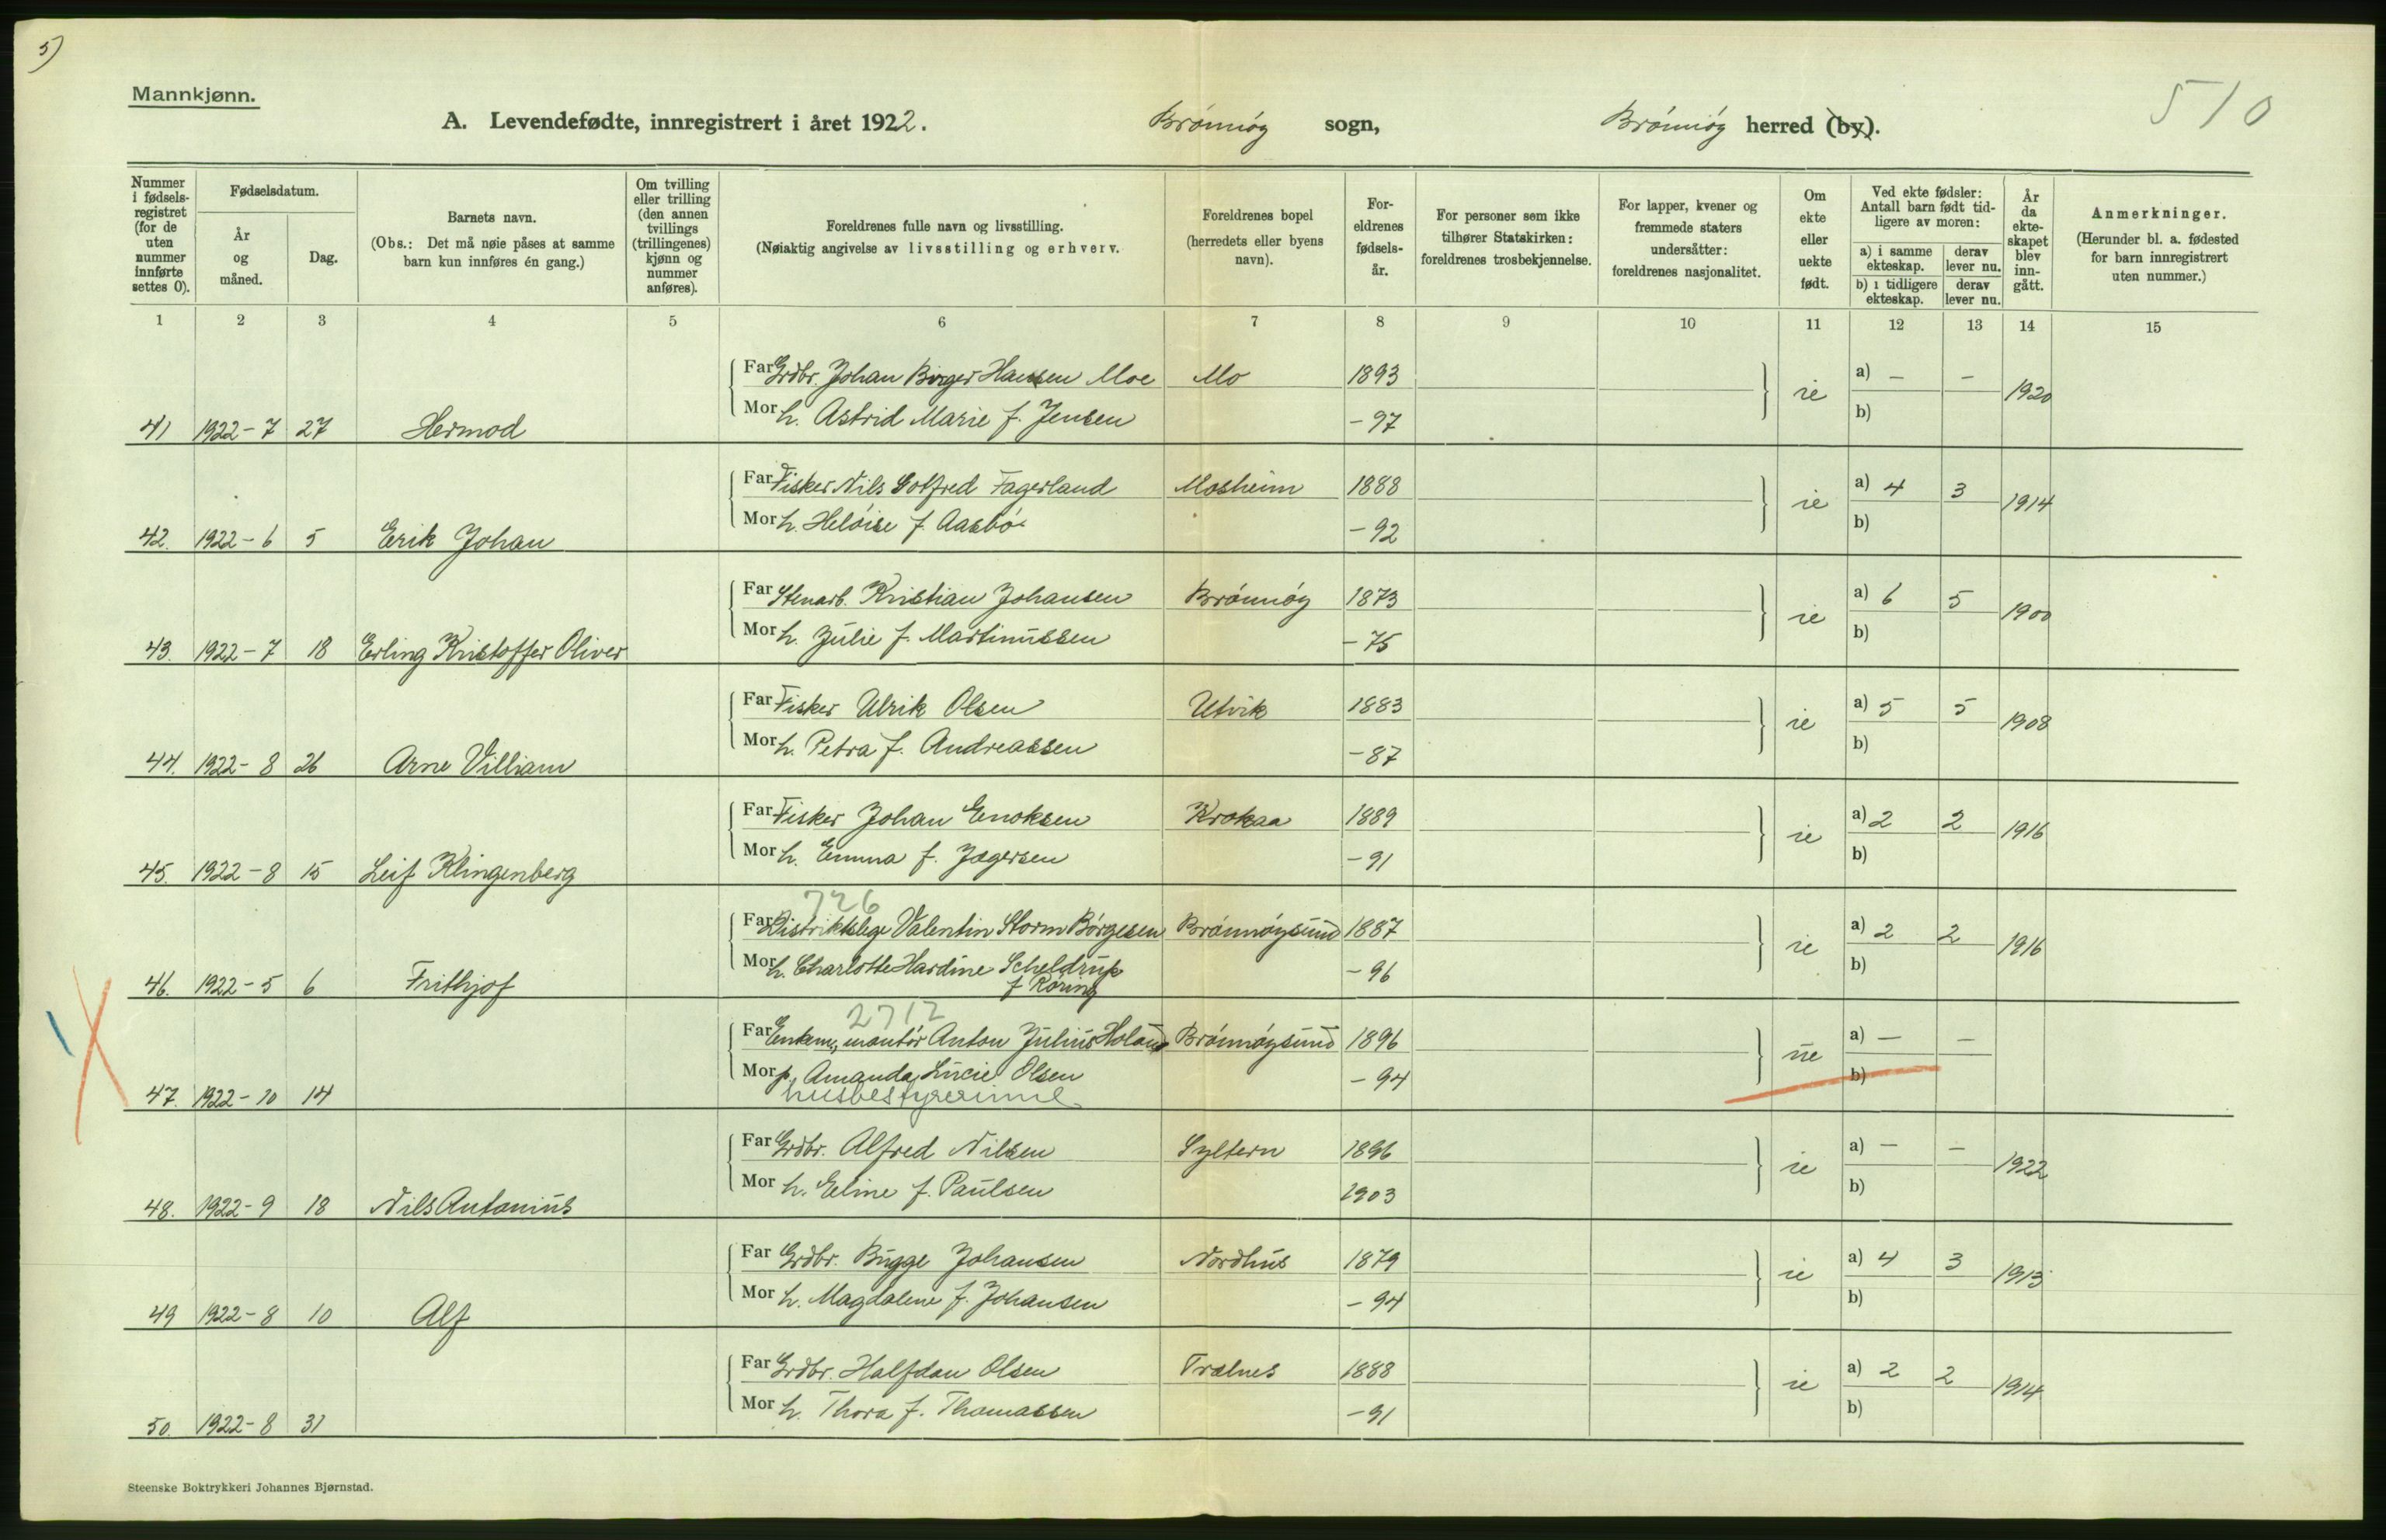 5)
Mannkjønn.
510
A. Levendefødte, innregistrert i året 1922. Brönnöy sogn, Brönnöy herred (by).
Nummer i fødsels-registret (for de uten nummer innførte settes 0).
Fødselsdatum.
År og måned.
Dag.
Barnets navn.
(Obs.: Det må nøie påses at samme barn kun innføres én gang.)
Om tvilling eller trilling (den annen tvillings (trillingenes) kjønn og nummer anføres).
Foreldrenes fulle navn og livsstilling.
(Nøiaktig angivelse av livsstilling og erhverv.
Foreldrenes bopel (herredets eller byens navn).
For-eldrenes fødsels-år.
For personer som ikke tilhører Statskirken: foreldrenes trosbekjennelse.
For lapper, kvener og fremmede staters undersåtter: foreldrenes nasjonalitet.
Om ekte eller uekte født.
Ved ekte fødsler: Antall barn født tid-ligere av moren:
a) i samme ekteskap.
derav lever nu.
b) i tidligere ekteskap.
derav lever nu.
År da ekte-skapet blev inn-gått.
Anmerkninger.
(Herunder bl. a. fødested for barn innregistrert uten nummer.)
1 2 3 4 5 6 7 8 9 10 11 12 13 14 15
Far Grdbr. Johan Birger Hansen Moe Mo 1893
Mor h. Astrid Marie f. Jensen - 97
41 1922 - 7 27 Hermod ie a) — — b) 1920
Far Fisker Nils Solfred Fagerland Mosheim 1888
Mor h. Helöise f. Aasbö - 92
42. 1922 - 6 5 Erik Johan ie a) 4 3 b) 1914
Far Stenarb. Kristian Johansen Brönnöy 1873
Mor h. Julie f. Martinussen - 75
43. 1922 - 7 18 Erling Kristoffer Oliver ie a) 6 5 b) 1900
Far Fisker Ulrik Olsen Utvik 1883
Mor h. Petra f. Andreassen - 87
44. 1922 - 8 26 Arne Villiam ie a) 5 5 b) 1908
Far Fisker Johan Enoksen Krokaa 1889
Mor h. Emma f. Jægersen - 91
45. 1922 - 8 15 Leif Klingenberg ie a) 2 2 b) 1916
726
Far Distriktslege Valentin Storm Börgesen Brönnöysund 1887
Mor h. Charlotte Hardine Scheldrup - 96
f Röring
46. 1922 - 5 6 Frithjof ie a) 2 2 b) 1916
2712
Far Enkem., montör Anton Julius Holand Brönnöysund 1896
Mor p. Amanda Lucie Olsen - 94
husbestyrerinne
47. 1922 - 10 14 ue a) — — b)
Far Grdbr. Alfred Nilsen Syltern 1896
Mor h. Eline f. Paulsen 1903
48. 1922 - 9 18 Nils Antonius ie a) — — b) 1922
Far Grdbr. Bugge Johansen Nordhus 1879
Mor h. Magdalene f. Johansen - 94
49 1922 - 8 10 Alf ie a) 4 3 b) 1913
Far Grdbr. Halfdan Olsen Trælnes 1888
Mor h. Thora f. Thomassen - 91
50. 1922 - 8 31 ie a) 2 2 b) 1914
Steenske Boktrykkeri Johannes Bjørnstad.